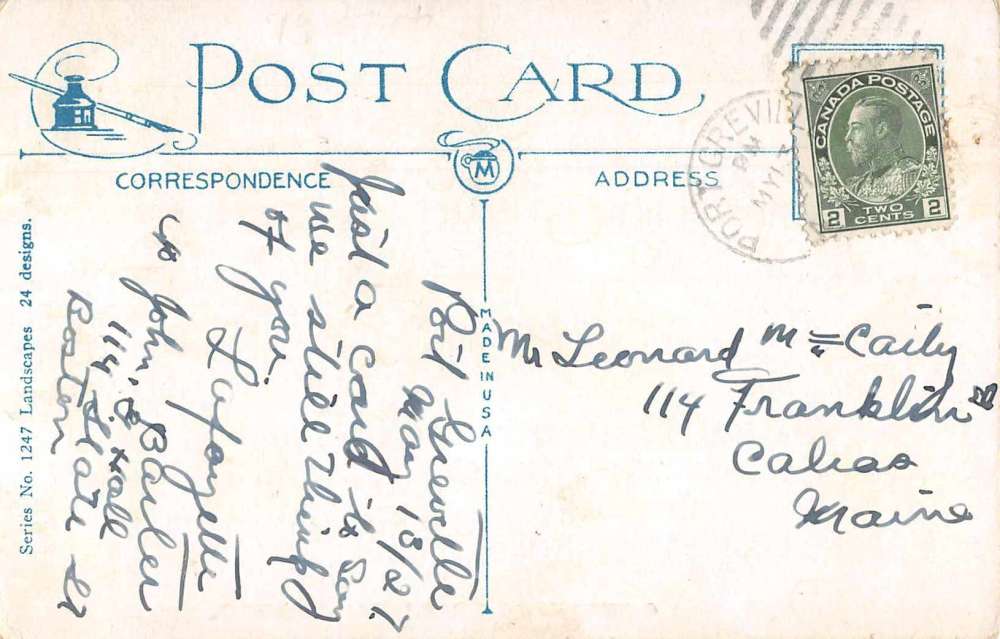 POST CARD
CORRESPONDENCE
ADDRESS
M
CANADA POSTAGE
2 TWO CENTS 2
PORT GREVILL
PM
MY 13
Port Greville
May 13/27.
Just a card to say
we still think
of you.
Lafayette
℅ John,
114 State St
Boston
Mr Leonard Mc=Caily
114 Franklin St
Calias
Maine
MADE IN USA
Series No. 1247 Landscapes 24 designs.